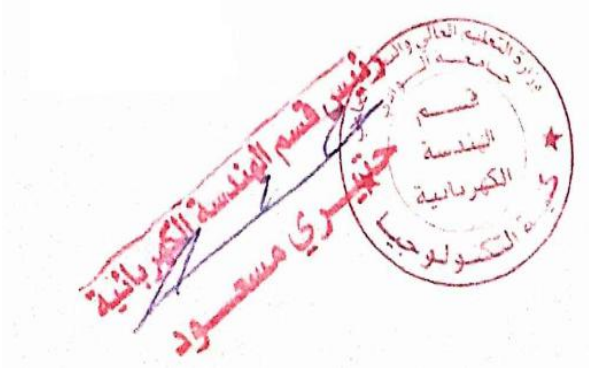 رئيس قسم الهندسة الكهربائية
حنيــري مسعــود
وزارة التعليم العالي والبحث
جامعــة الــوادي
قســم
الهندسة
الكهربائية
كلية التكنولوجيا